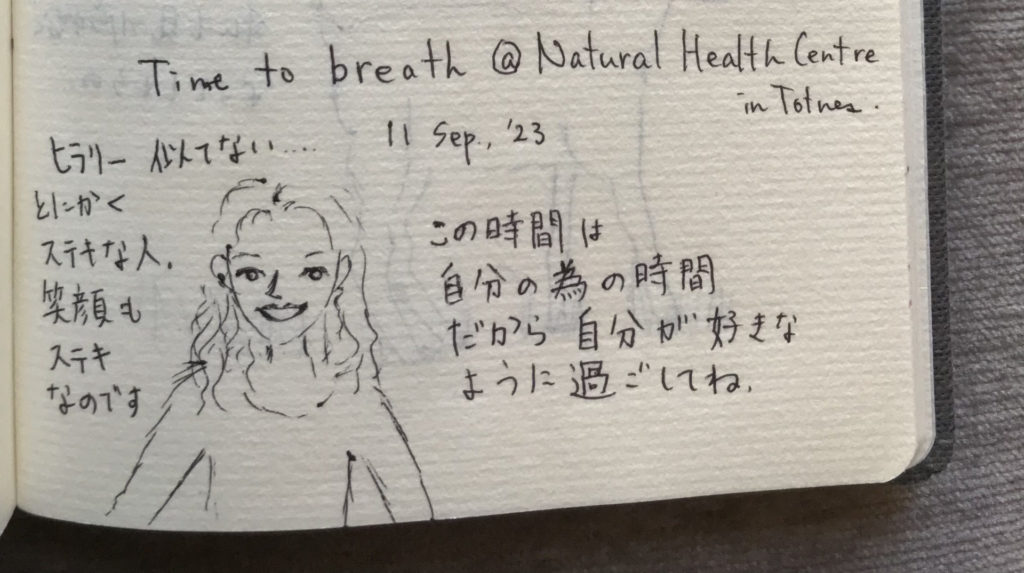 Time to breath @ Natural Health Centre
in Totnes.
11 Sep., '23
ヒラリー 似てない....
とにかく
ステキな人.
笑顔も
ステキ
なのです
この時間は
自分の為の時間
だから自分が好きな
ように過ごしてね.